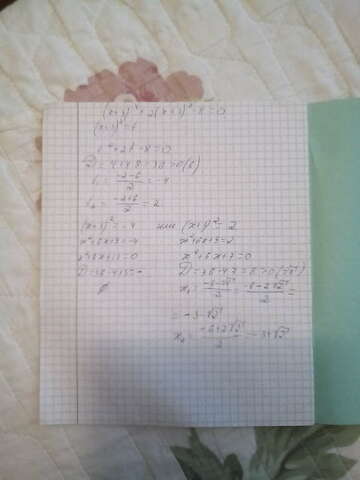 (x+3)⁴+2(x+3)²-8=0
(x+3)²=t
t²+2t-8=0
D=4+4·8=36>0(6)
t₁=(-2-6)/2=-4
t₂=(-2+6)/2=2
(x+3)²=-4 или (x+3)²=2
x²+6x+9=-4 x²+6x+9=2
x²+6x+13=0 x²+6x+7=0
x₁= = (-6-2√2)/2 =
=-3-√2
x₂= (-6+2√2)/2 =-3+√2